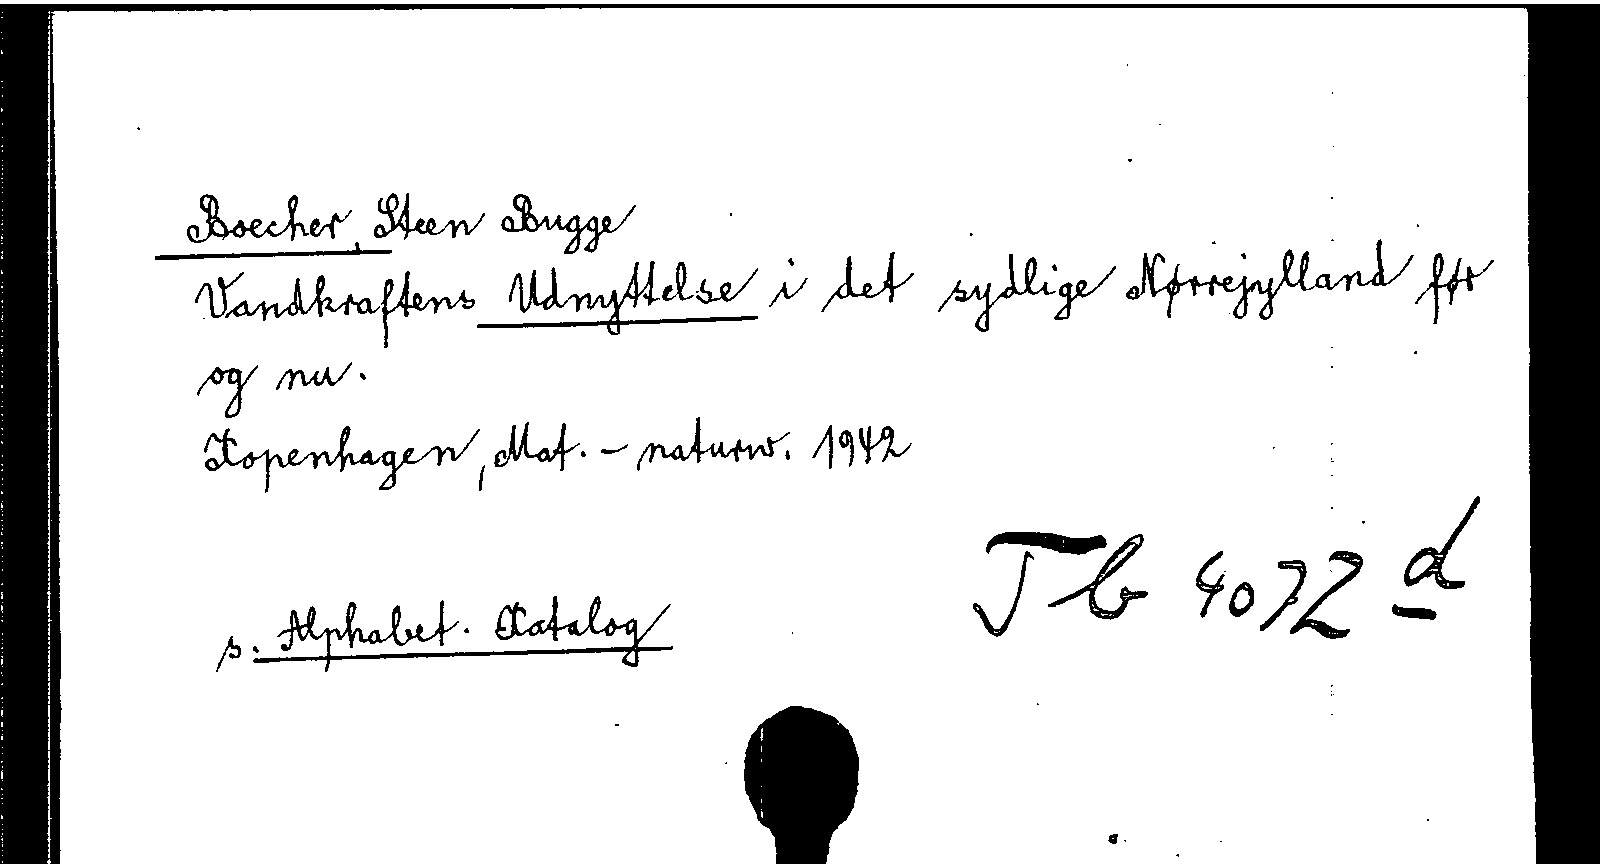 Boecher, Steen Bugge
Vandkraftens Udnyttelse i det sydlige Nørrejylland før
og nu.
Kopenhagen, Mat. - naturw. 1942
Tb 4072 d
s. Alphabet. Katalog